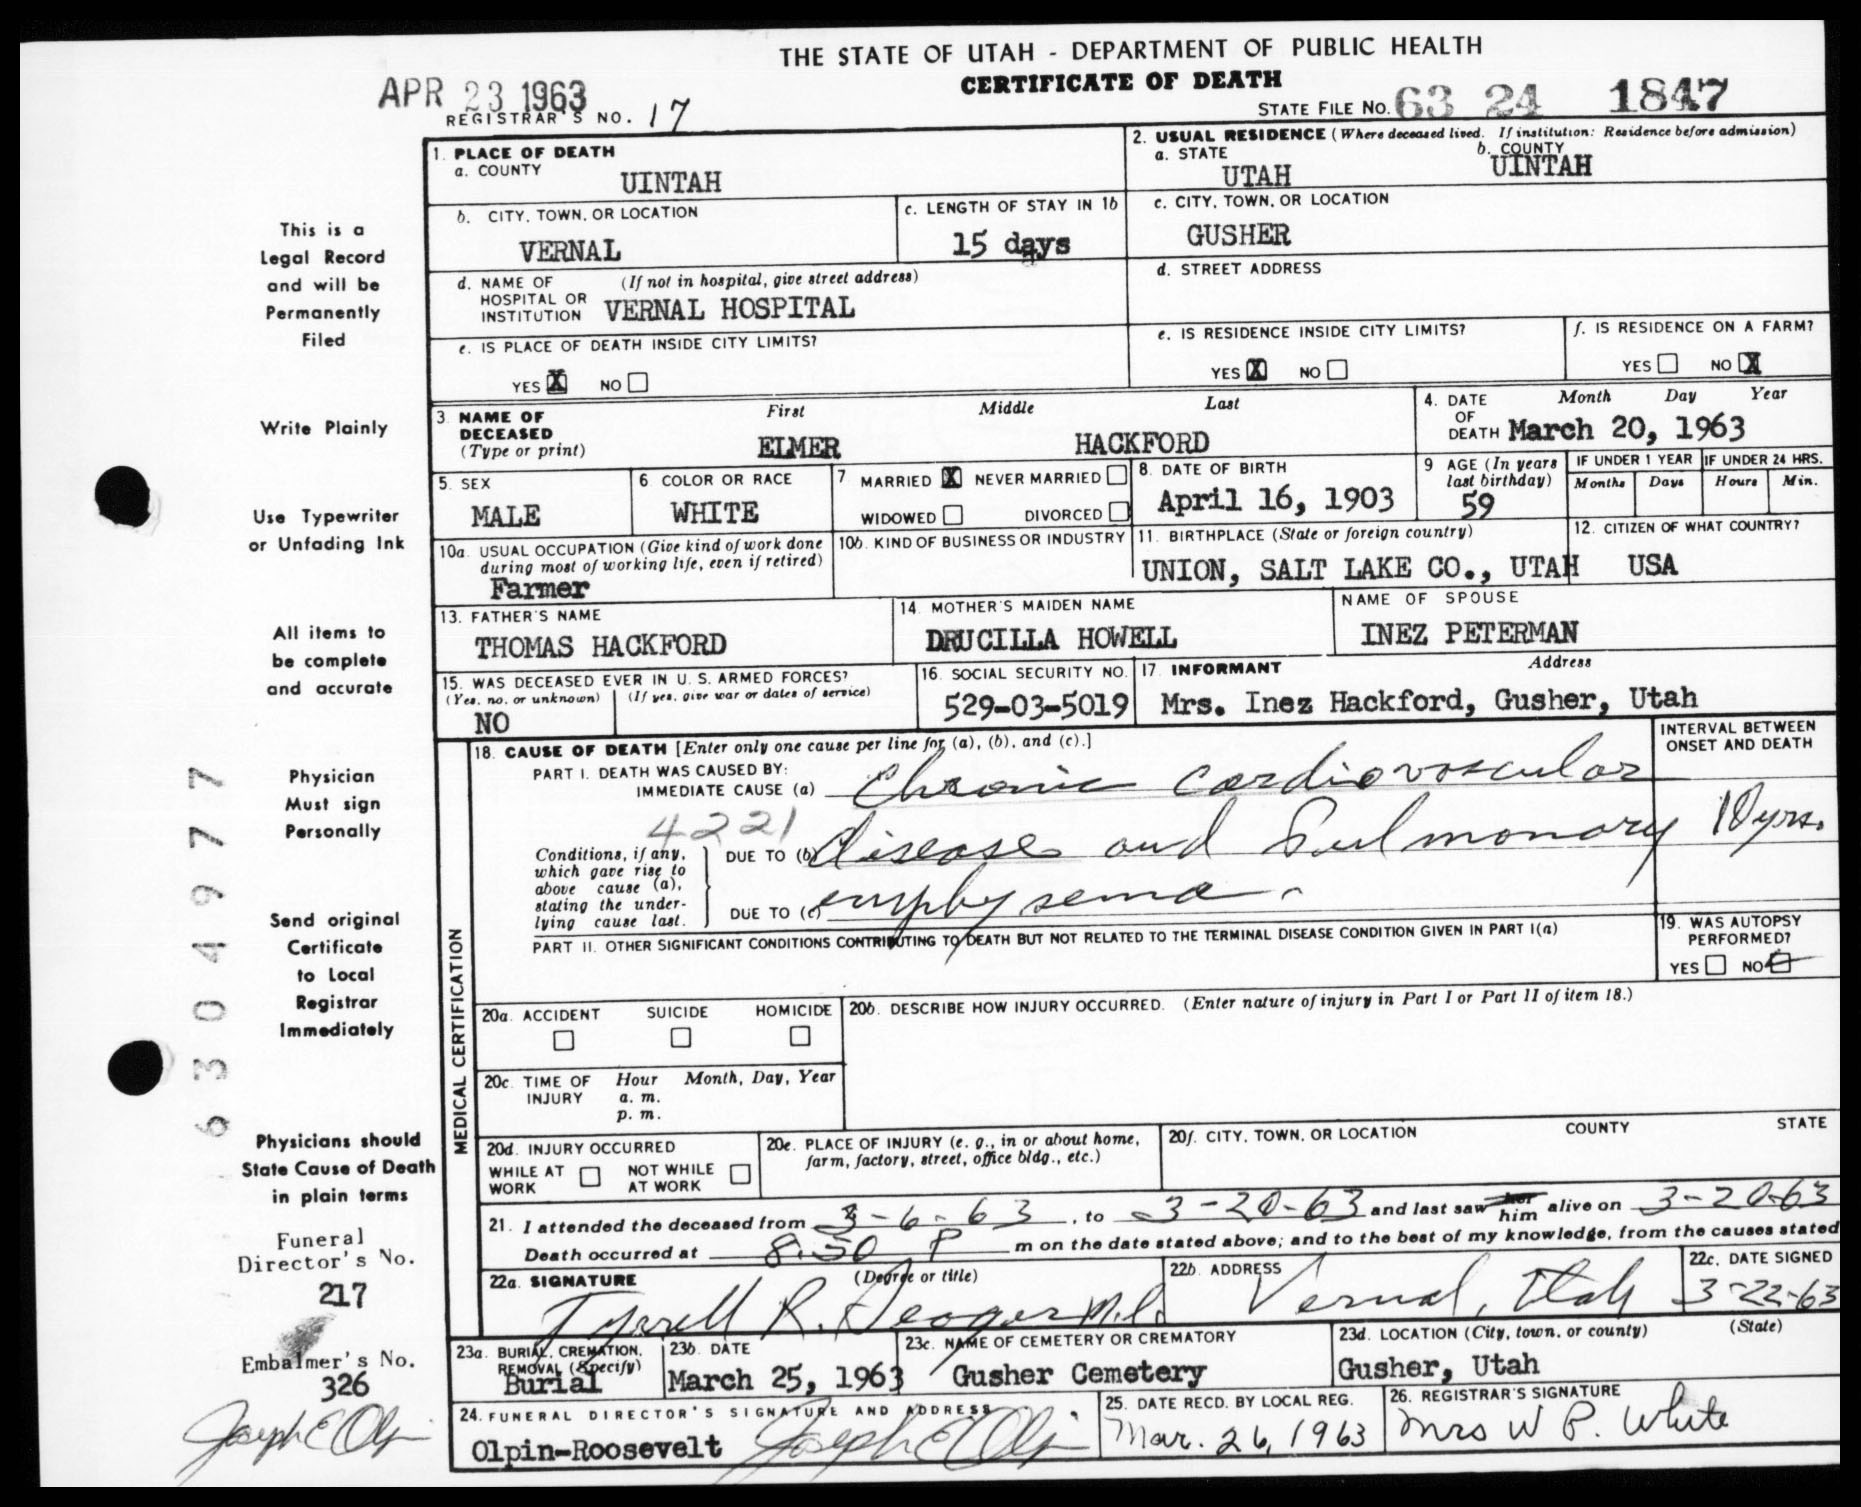 THE STATE OF UTAH - DEPARTMENT OF PUBLIC HEALTH
CERTIFICATE OF DEATH
APR 23 1963
REGISTRAR'S NO. 17
STATE FILE NO. 63 24 1847
1. PLACE OF DEATH
a. COUNTY
UINTAH
2. USUAL RESIDENCE (Where deceased lived. If institution: Residence before admission)
a. STATE
UTAH
b. COUNTY
UINTAH
b. CITY, TOWN, OR LOCATION
VERNAL
c. LENGTH OF STAY IN 1b
15 days
c. CITY, TOWN, OR LOCATION
GUSHER
d. NAME OF HOSPITAL OR INSTITUTION
(If not in hospital, give street address)
VERNAL HOSPITAL
d. STREET ADDRESS
e. IS PLACE OF DEATH INSIDE CITY LIMITS?
YES X NO
e. IS RESIDENCE INSIDE CITY LIMITS?
YES X NO
f. IS RESIDENCE ON A FARM?
YES NO X
3. NAME OF DECEASED
(Type or print)
First Middle Last
ELMER HACKFORD
4. DATE OF DEATH
Month Day Year
March 20, 1963
5. SEX
MALE
6 COLOR OR RACE
WHITE
7 MARRIED X NEVER MARRIED
WIDOWED DIVORCED
8. DATE OF BIRTH
April 16, 1903
9 AGE (In years last birthday)
59
IF UNDER 1 YEAR
Months Days
IF UNDER 24 HRS.
Hours Min.
10a. USUAL OCCUPATION (Give kind of work done during most of working life, even if retired)
Farmer
10b. KIND OF BUSINESS OR INDUSTRY
11. BIRTHPLACE (State or foreign country)
UNION, SALT LAKE CO., UTAH
12. CITIZEN OF WHAT COUNTRY?
USA
13. FATHER'S NAME
THOMAS HACKFORD
14. MOTHER'S MAIDEN NAME
DRUCILLA HOWELL
NAME OF SPOUSE
INEZ PETERMAN
15. WAS DECEASED EVER IN U. S. ARMED FORCES?
(Yes, no, or unknown) (If yes, give war or dates of service)
NO
16. SOCIAL SECURITY NO.
529-03-5019
17. INFORMANT Address
Mrs. Inez Hackford, Gusher, Utah
MEDICAL CERTIFICATION
18. CAUSE OF DEATH [Enter only one cause per line for (a), (b), and (c).]
INTERVAL BETWEEN ONSET AND DEATH
PART I. DEATH WAS CAUSED BY:
IMMEDIATE CAUSE (a) Chronic cardiovascular
4221
Conditions, if any, which gave rise to above cause (a), stating the underlying cause last.
DUE TO (b) disease and Pulmonary 10 yrs.
DUE TO (c) emphysema.
PART II. OTHER SIGNIFICANT CONDITIONS CONTRIBUTING TO DEATH BUT NOT RELATED TO THE TERMINAL DISEASE CONDITION GIVEN IN PART I(a)
19. WAS AUTOPSY PERFORMED?
YES NO
20a. ACCIDENT SUICIDE HOMICIDE
20b. DESCRIBE HOW INJURY OCCURRED. (Enter nature of injury in Part I or Part II of item 18.)
20c. TIME OF INJURY
Hour Month, Day, Year
a. m.
p. m.
20d. INJURY OCCURRED
WHILE AT WORK NOT WHILE AT WORK
20e. PLACE OF INJURY (e. g., in or about home, farm, factory, street, office bldg., etc.)
20f. CITY, TOWN, OR LOCATION COUNTY STATE
21. I attended the deceased from 3-6-63, to 3-20-63 and last saw her him alive on 3-20-63
Death occurred at 8:50 P m on the date stated above; and to the best of my knowledge, from the causes stated
22a. SIGNATURE (Degree or title)
Tyrrell R. Seager M.D.
22b. ADDRESS
Vernal, Utah
22c. DATE SIGNED
3-22-63
23a. BURIAL, CREMATION, REMOVAL (Specify)
Burial
23b. DATE
March 25, 1963
23c. NAME OF CEMETERY OR CREMATORY
Gusher Cemetery
23d. LOCATION (City, town, or county) (State)
Gusher, Utah
24. FUNERAL DIRECTOR'S SIGNATURE AND ADDRESS
Olpin-Roosevelt Joseph E Olpin
25. DATE RECD. BY LOCAL REG.
Mar. 26, 1963
26. REGISTRAR'S SIGNATURE
Mrs W P. White
This is a
Legal Record
and will be
Permanently
Filed
Write Plainly
Use Typewriter
or Unfading Ink
All items to
be complete
and accurate
Physician
Must sign
Personally
Send original
Certificate
to Local
Registrar
Immediately
Physicians should
State Cause of Death
in plain terms
Funeral
Director's No.
217
Embalmer's No.
326
Joseph E Olpin
6304977